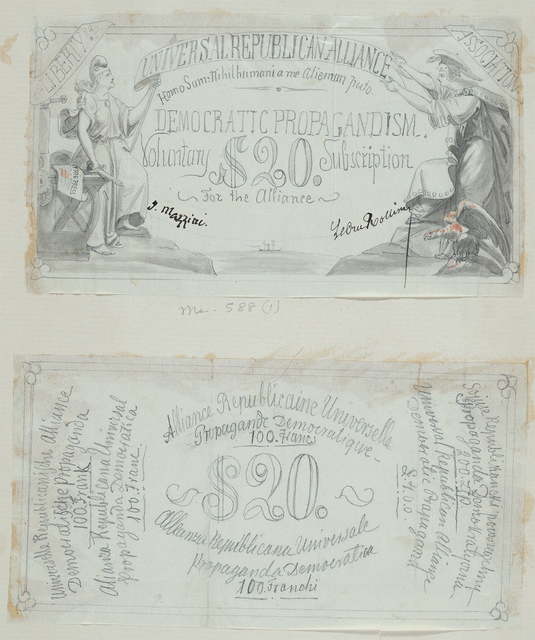 LIBERTY &
UNIVERSAL REPUBLICAN ALLIANCE
ASSOCIATION
Homo Sum: Nihil humani a me alienum puto.
DEMOCRATIC PROPAGANDISM.
Voluntary $20. Subscription
For the Alliance
J. Mazzini.
Ledru Rollin
588 (1)
Alliance Republicaine Universelle
Propagande Democratique
100. Francs
$20.
Alleanza Repubblicana Universale
Propaganda Democratica
100. Franchi
Universelle Republicanische Alliance
Democratische Propaganda
100. Frank
Alianza Republicana Universal
propaganda Democratica
100. Franc.
Universal Republican Alliance
Democratic Propagand